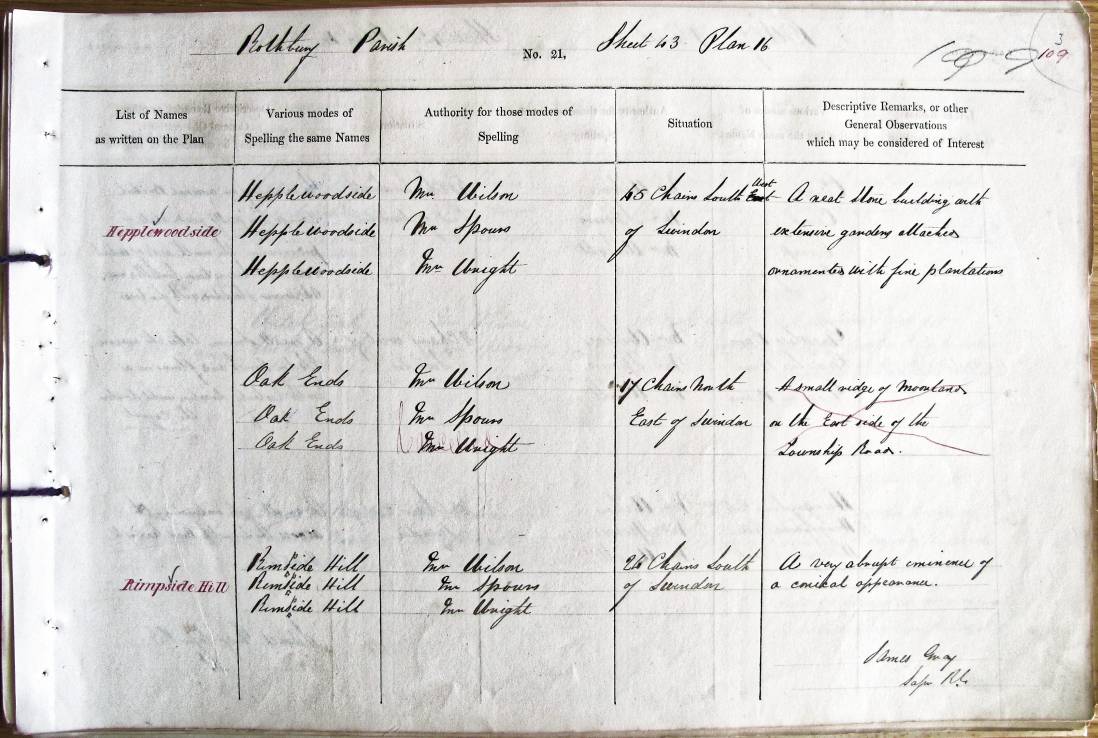 Rothbury Parish
No. 21,
Sheet 43 Plan 16
3
109
List of Names
as written on the Plan
Various modes of
Spelling the same Names
Authority for those modes of
Spelling
Situation
Descriptive Remarks, or other
General Observations
which may be considered of Interest
Hepplewoodside
Hepplewoodside
Hepplewoodside
Hepplewoodside
Mr. Wilson
Mr. Spours
Mr. Wright
West
45 Chains South East
of Swindon
A neat Stone building with
extensive gardens attached
ornamented with fine plantations
Oak Ends
Oak Ends
Oak Ends
Mr Wilson
Mr Spours
Mr Wright
17 Chains North
East of Swindon
A small ridge of Moorland
on the East side of the
Township Road.
Rimpside Hill
Rimside Hill
Rimside Hill
Rimside Hill
Mr Wilson
Mr Spours
Mr Wright
26 Chains South
of Swindon
A very abrupt eminence of
a conical appearance.
James Gray
Sapr R.E.